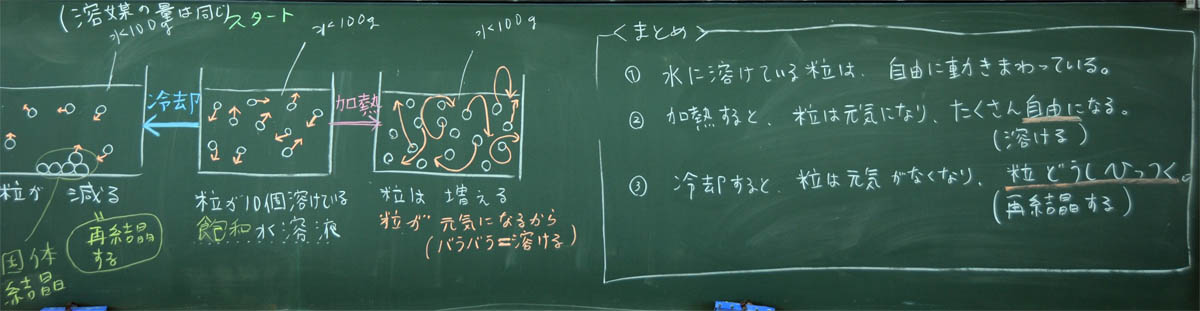 (溶媒の量は同じ)
スタート
水100g
水100g
水100g
冷却
加熱
粒が 減る
再結晶
する
固体
結晶
粒が10個溶けている
飽和水溶液
粒は 増える
粒が 元気になるから
(バラバラ=溶ける)
<まとめ>
① 水に溶けている粒は、自由に動きまわっている。
② 加熱すると、粒は元気になり、たくさん自由になる。
(溶ける)
③ 冷却すると、粒は元気がなくなり、粒どうしひっつく。
(再結晶する)